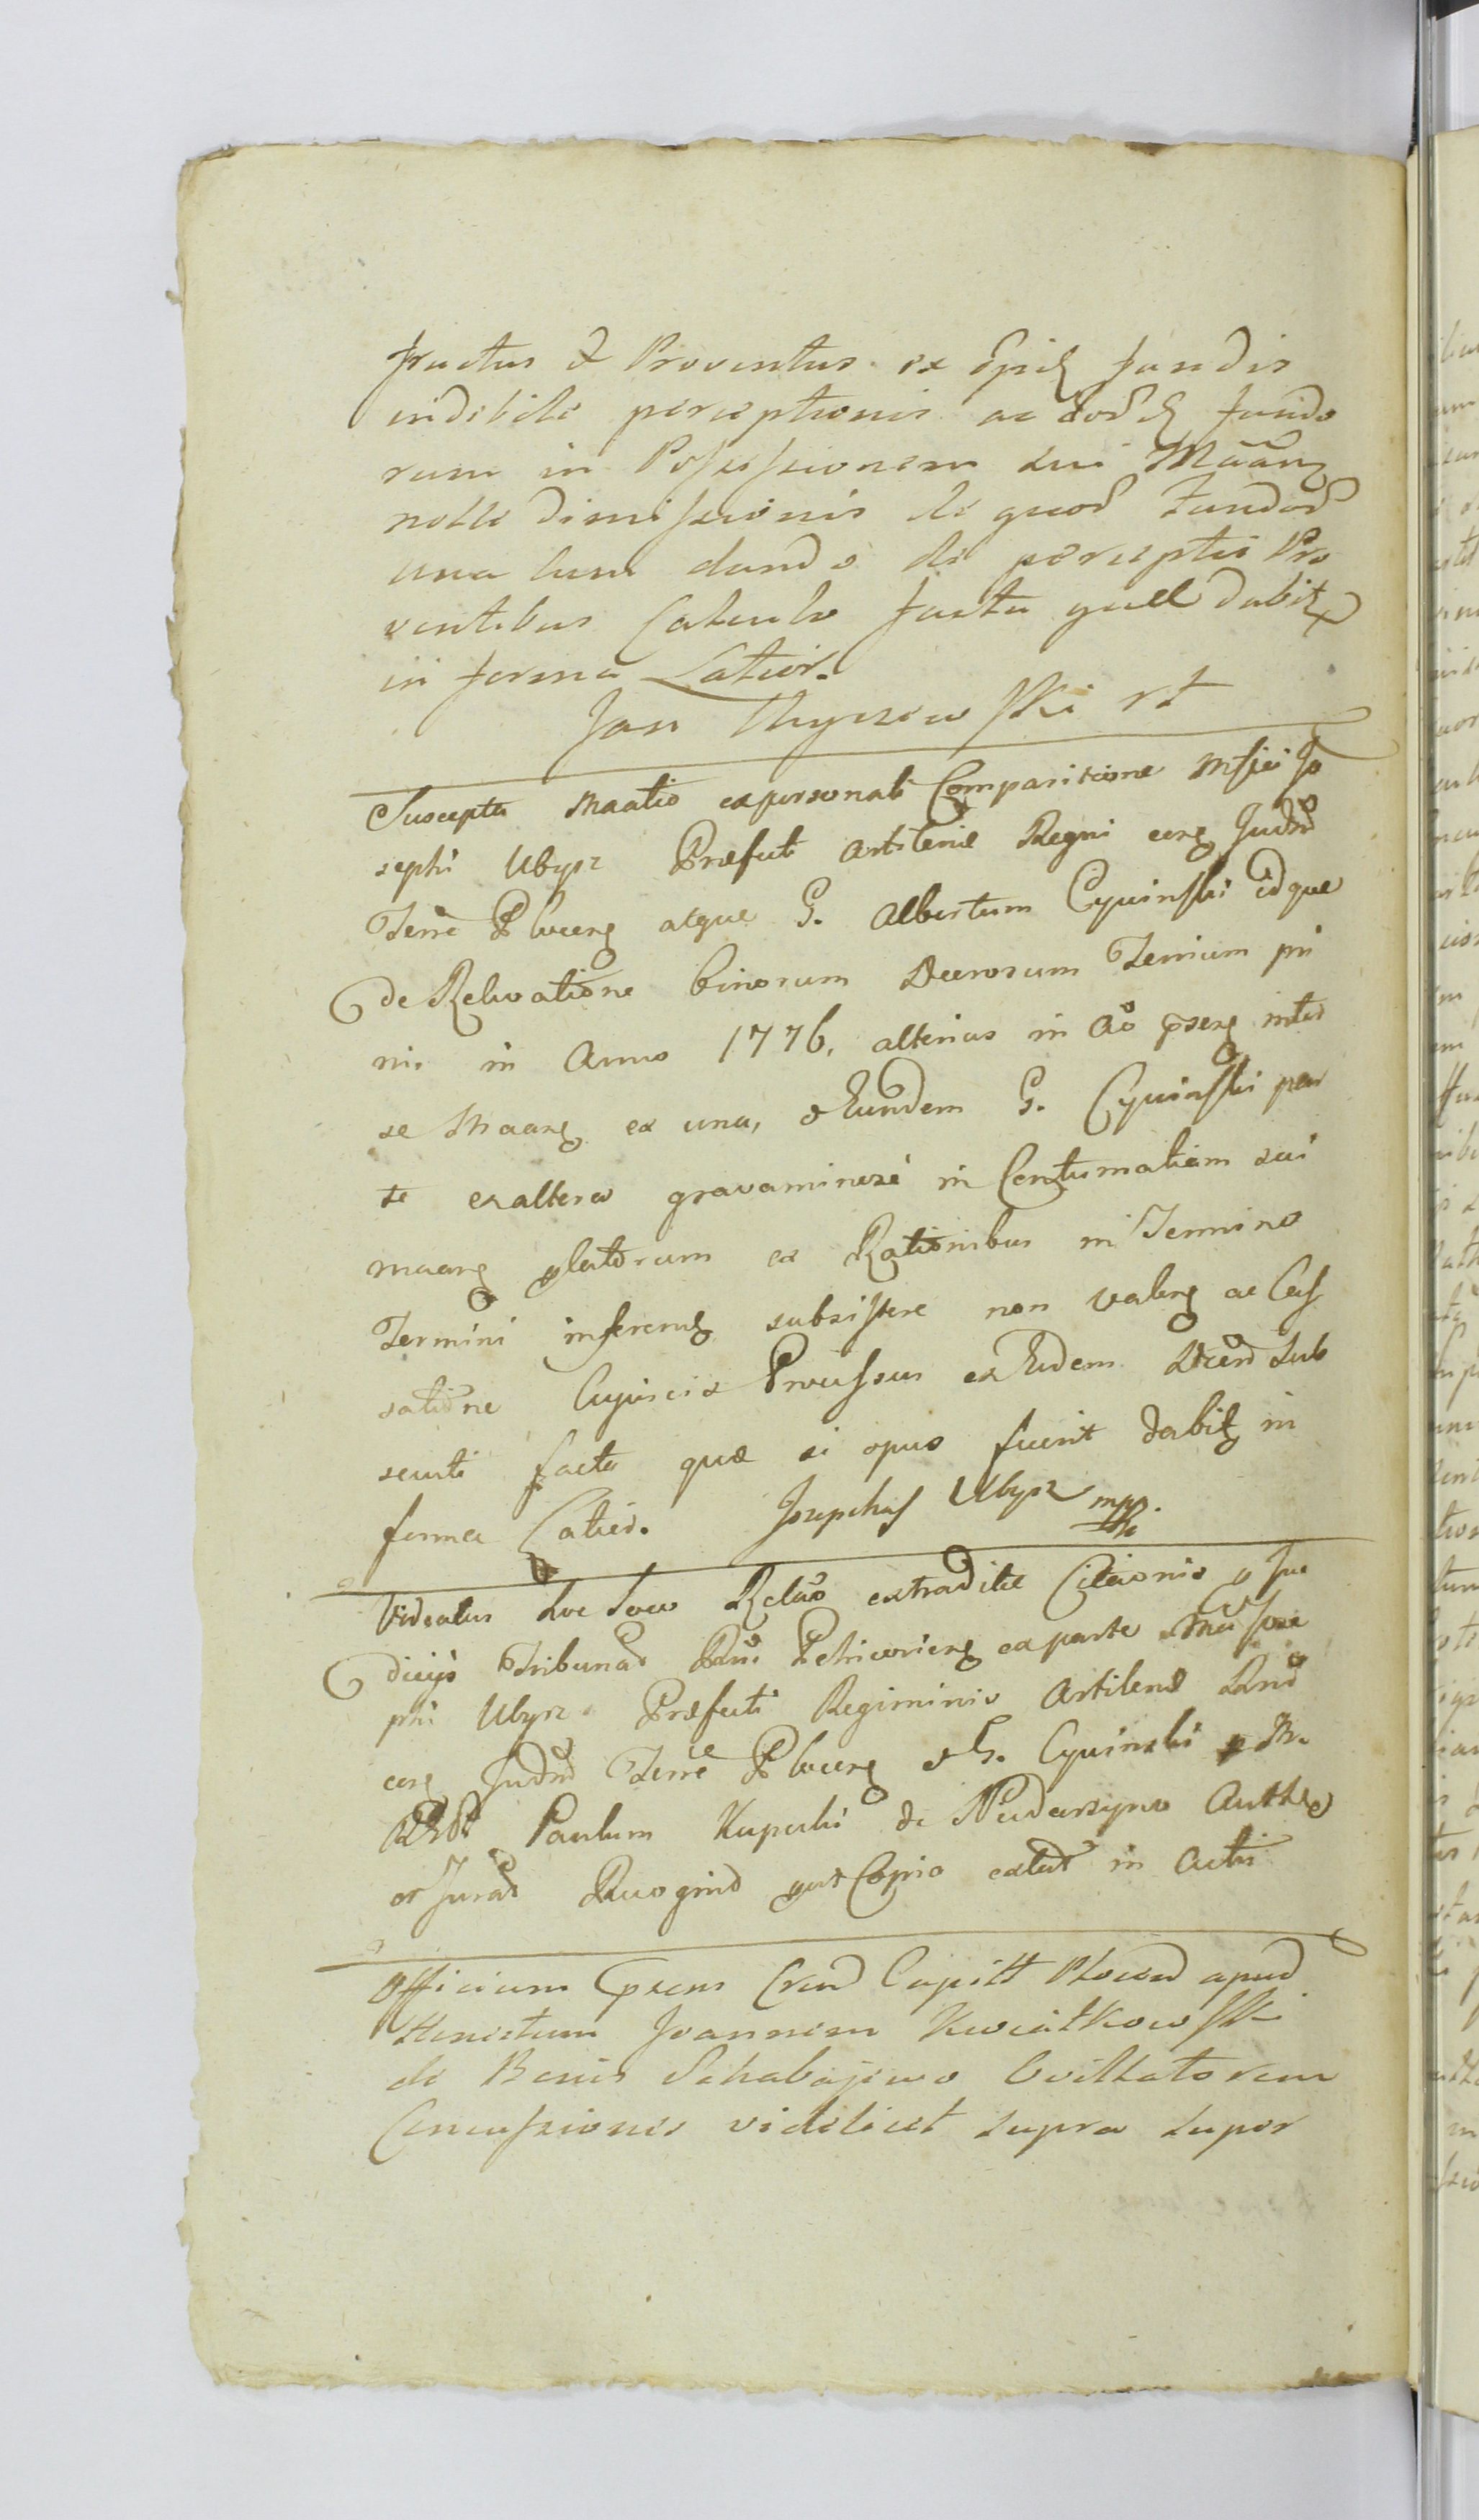 fructus & Proventus ex Ipsis fundis
indebite perceptionis ac eod fundo
rum in Possessionem sui Maan
nolle dimissionis de quod fundod
una cum dando de perceptis Pro
ventibus Calculo facta quae dabit
in forma Latior.
Jan
Suscepta Maatio ex personali Comparitione Msfici Jo
sephi Ubysz Praefecti Artileriae Regni cens Judm
Terrae Plocens atque G. Albertum Cywinski idque
de Relevatione binorum Decrorum Terrium pri
mi in Anno 1776, alterius in Ao psens inter
se Maans ex una, & Eundem G. Cywinski par
te ex altera gravaminose in Contumatiam sui
maans platorum ex Rationibus in Termino
Termini inferends subsistere non valens ac Cas
satione Cujuscis Processus ex Eodem Decro sub
secuti facta quae si opus fuerit dabit in
forma Latior. Josephus Ubysz mpp.
Videatur hoc loco Relao extraditae Citaonis Ju
dicijs Tribunad Rni Petricoviens ex parte Jose
phi Ubysz Praefecti Regiminis Artilerie Rni
cens Judm Terrae Plocens & G. Cywinski p M.
Paulum Kuperski de Authen
et Jurad Recognid put Copia extat in Actis
Officium psens Cren Capitt Plocen apud
Joannem Kwiatkowski
de Bonis
Concussiones videlicet supra super